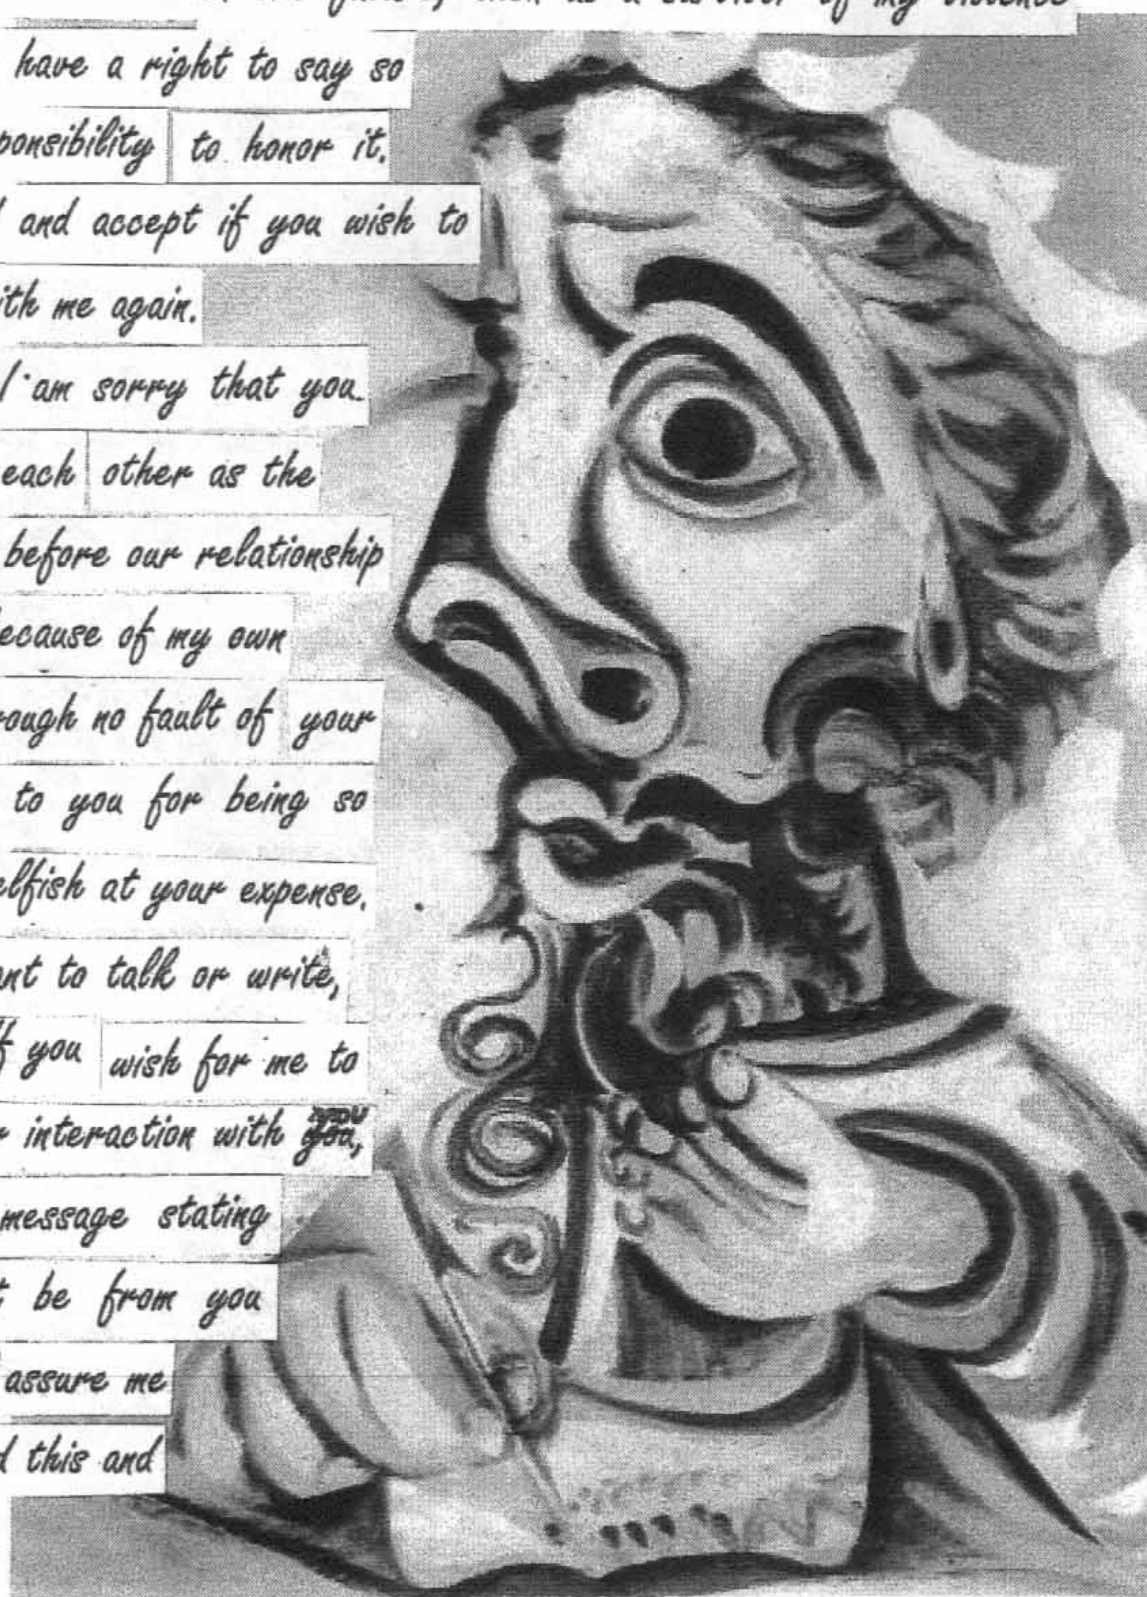 of my violence
have a right to say so
ponsibility to honor it.
and accept if you wish to
ith me again.
I am sorry that you
each other as the
before our relationship
ecause of my own
rough no fault of your
to you for being so
elfish at your expense.
nt to talk or write,
f you wish for me to
r interaction with you,
message stating
t be from you
assure me
d this and